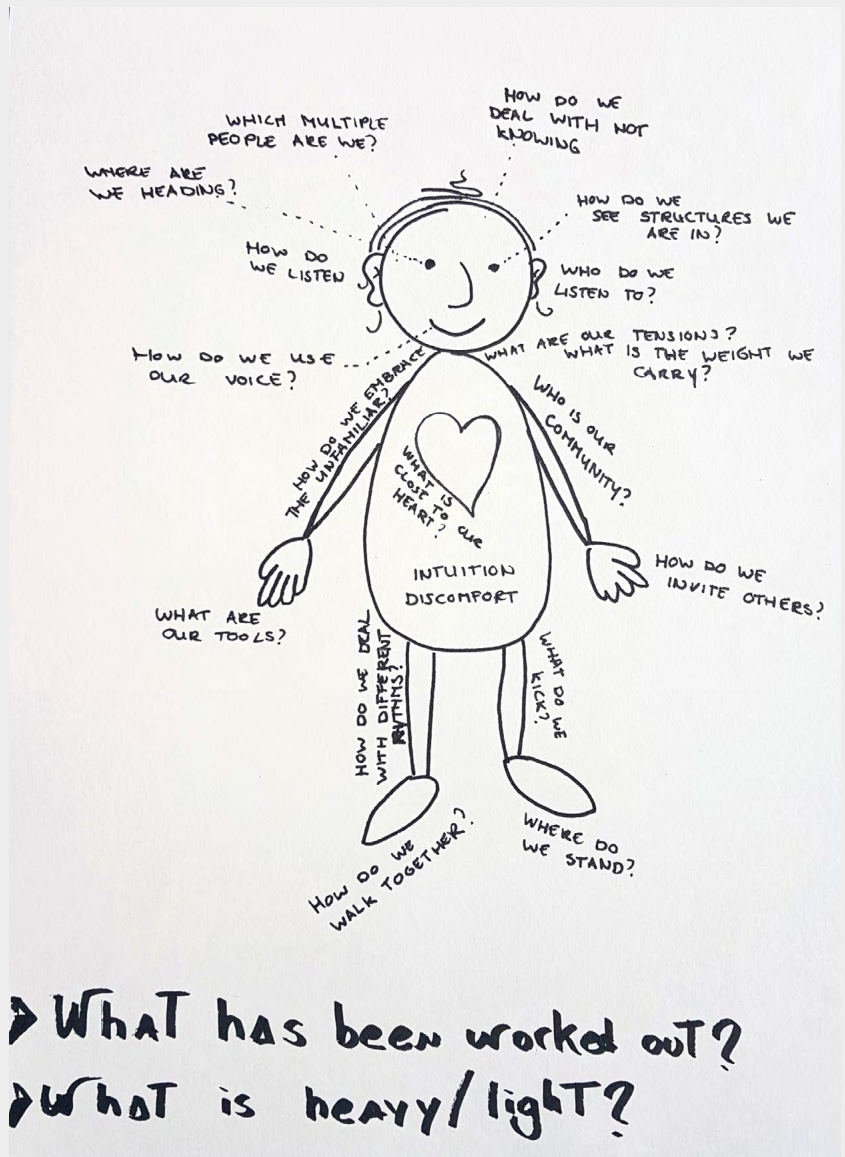 HOW DO WE
DEAL WITH NOT
KNOWING
WHICH MULTIPLE
PEOPLE ARE WE?
WHERE ARE
WE HEADING?
HOW DO WE
SEE STRUCTURES WE
ARE IN?
HOW DO
WE LISTEN
WHO DO WE
LISTEN TO?
HOW DO WE USE
OUR VOICE?
WHAT ARE OUR TENSIONS?
WHAT IS THE WEIGHT WE
CARRY?
HOW DO WE EMBRACE
THE UNFAMILIAR?
WHO IS OUR
COMMUNITY?
WHAT IS
CLOSE TO OUR
HEART?
INTUITION
DISCOMFORT
WHAT ARE
OUR TOOLS?
HOW DO WE
INVITE OTHERS?
HOW DO WE DEAL
WITH DIFFERENT
RHYTHMS?
WHAT DO WE
KICK?
HOW DO WE
WALK TOGETHER?
WHERE DO
WE STAND?
WHAT has been worked out?
WHAT is heavy/light?